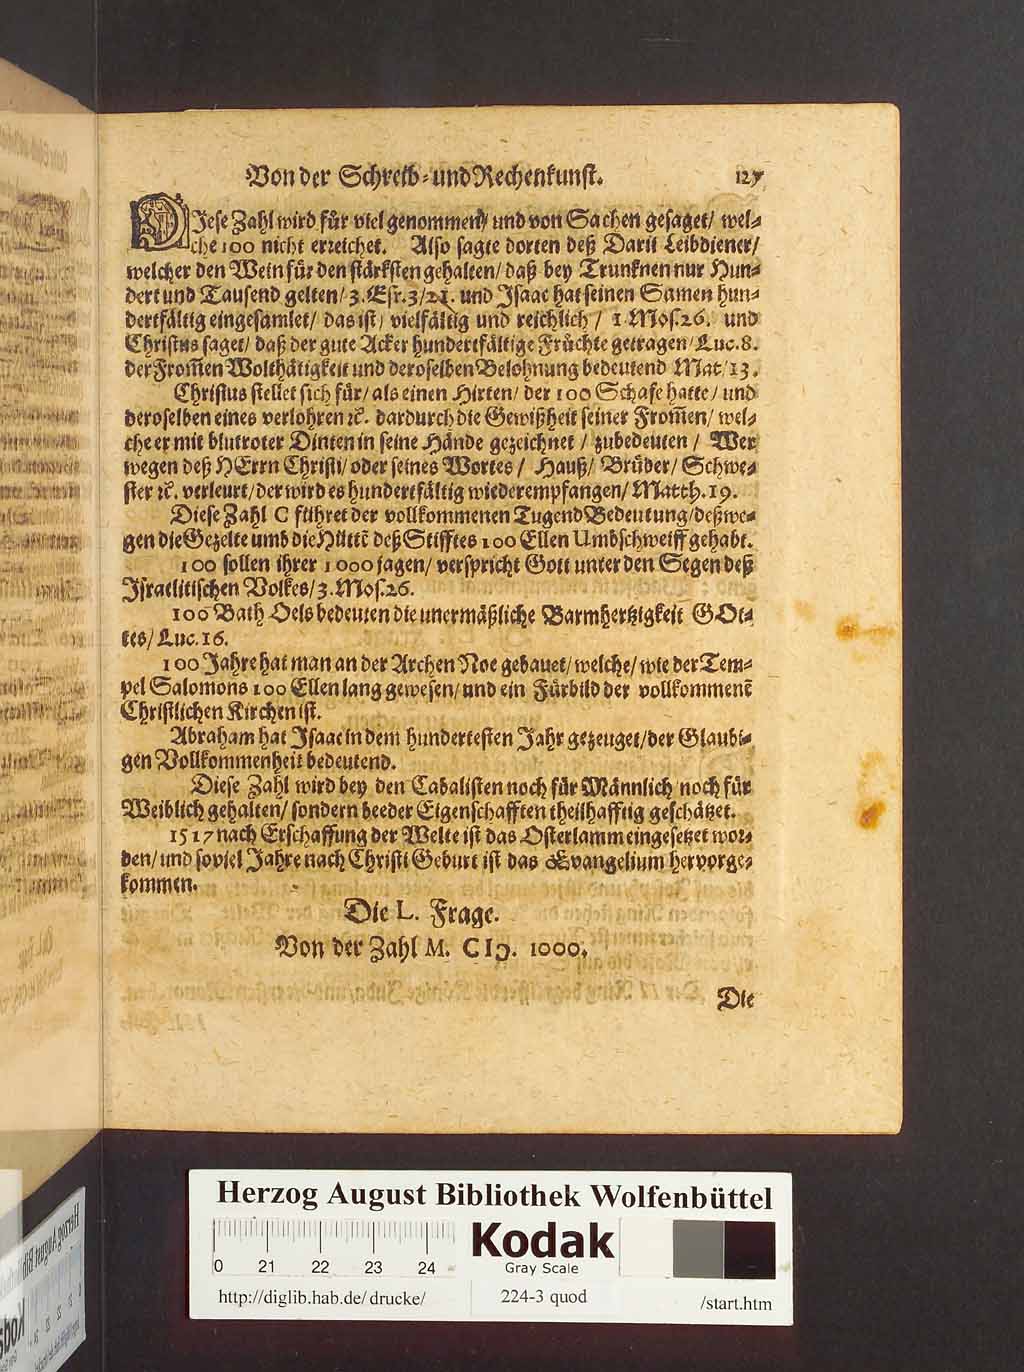 Von der Schreib- und Rechenkunst. 127
DJese Zahl wird für viel genommen/ und von Sachen gesaget/ wel-
che 100 nicht erreichet. Also sagte dorten deß Darii Leibdiener/
welcher den Wein für den stärksten gehalten/ daß bey Trunknen nur Hun-
dert und Tausend gelten/ 3. Esr. 3/21. und Jsaac hat seinen Samen hun-
dertfältig eingesamlet/ das ist/ vielfältig und reichlich/ 1 Mos. 26. und
Christus saget/ daß der gute Acker hundertfältige Früchte getragen/ Luc. 8.
der From̃en Wolthätigkeit und deroselben Belohnung bedeutend Mat/ 13.
Christus stellet sich für/ als einen Hirten/ der 100 Schafe hatte/ und
deroselben eines verlohren ꝛc. dardurch die Gewißheit seiner From̃en/ wel-
che er mit blutroter Dinten in seine Hände gezeichnet/ zubedeuten/ Wer
wegen deß HErrn Christi/ oder seines Wortes/ Hauß/ Brüder/ Schwe-
ster ꝛc. verleurt/ der wird es hundertfältig wieder empfangen/ Matth. 19.
Diese Zahl C führet der vollkommenen Tugend Bedeutung/ deßwe-
gen die Gezelte umb die Hüttẽ deß Stifftes 100 Ellen Umbschweiff gehabt.
100 sollen ihrer 1000 jagen/ verspricht Gott unter den Segen deß
Jsraelitischen Volkes/ 3. Mos. 26.
100 Bath Oels bedeuten die unermäßliche Barmhertzigkeit GOt-
tes/ Luc. 16.
100 Jahre hat man an der Archen Noe gebauet/ welche/ wie der Tem-
pel Salomons 100 Ellen lang gewesen/ und ein Fürbild der vollkommenẽ
Christlichen Kirchen ist.
Abraham hat Jsaac in dem hundertesten Jahr gezeuget/ der Glaubi-
gen Vollkommenheit bedeutend.
Diese Zahl wird bey den Cabalisten noch für Männlich noch für
Weiblich gehalten/ sondern beeder Eigenschafften theilhafftig geschätzet.
1517 nach Erschaffung der Welte ist das Osterlamm eingesetzet wor-
den/ und soviel Jahre nach Christi Geburt ist das Evangelium hervorge-
kommen.
Die L. Frage.
Von der Zahl M. CIↃ. 1000.
Die
Herzog August Bibliothek Wolfenbüttel
0 21 22 23 24
Kodak
Gray Scale
http://diglib.hab.de/drucke/ 224-3 quod /start.htm